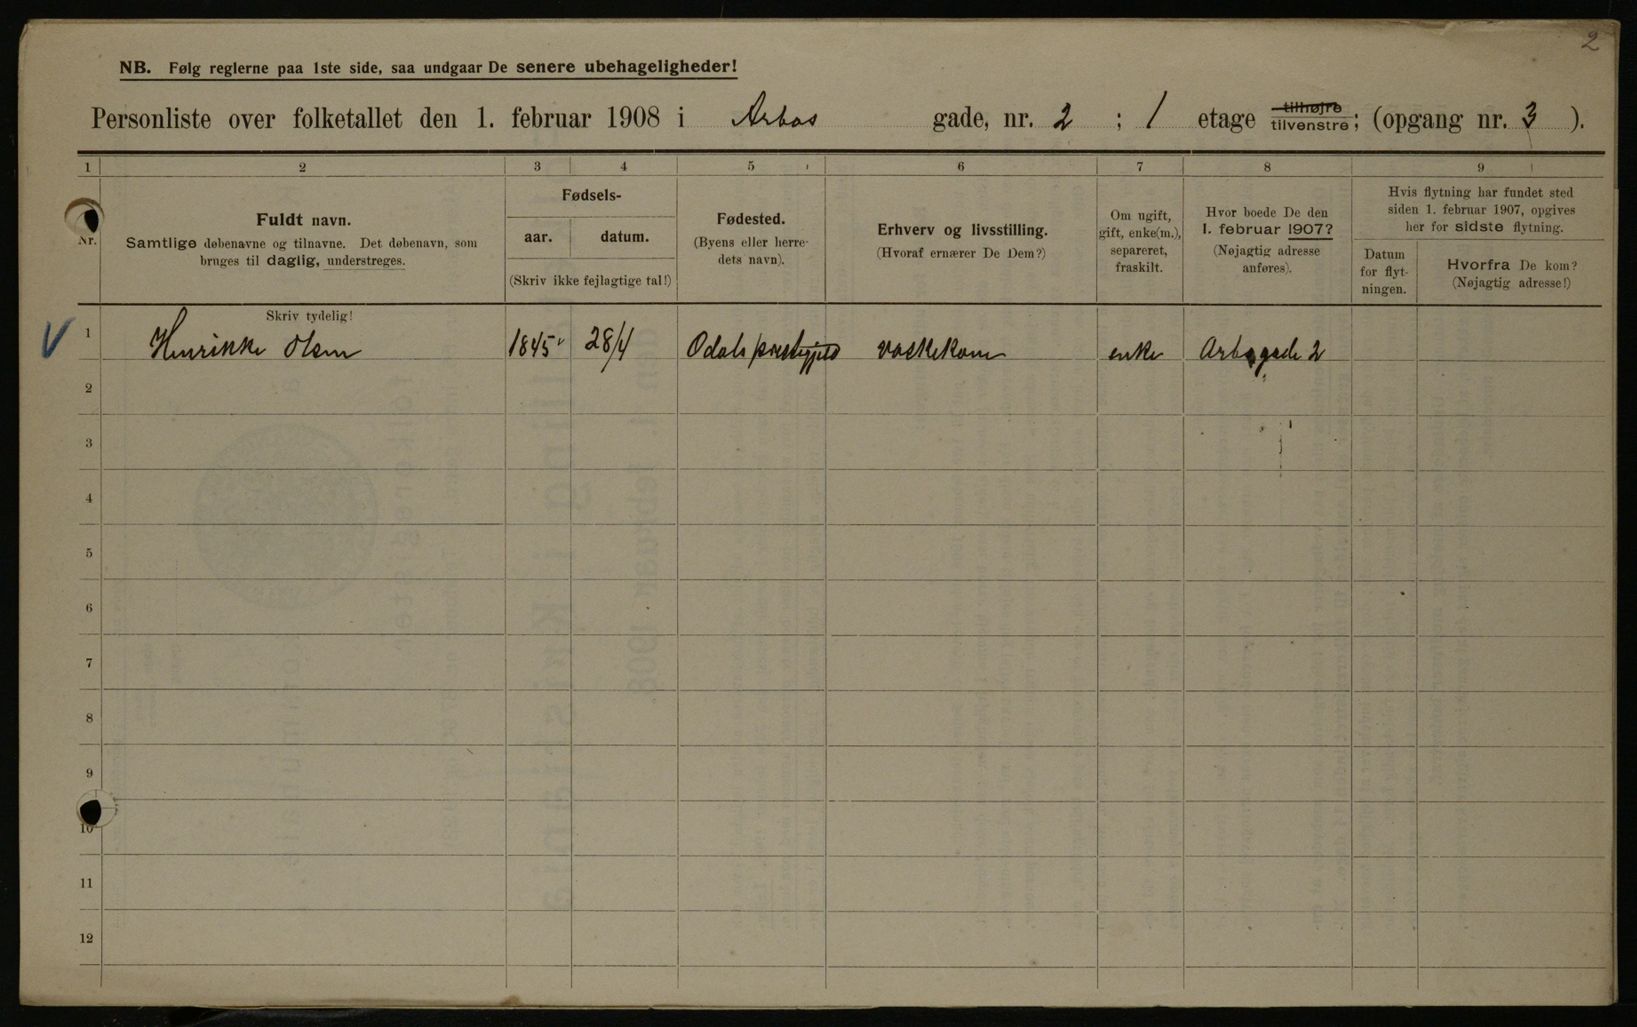 2
NB. Følg reglerne paa 1ste side, saa undgaar De senere ubehageligheder!
Personliste over folketallet den 1. februar 1908 i Arbos gade, nr. 2 ; 1 etage tilhøjre tilvenstre; (opgang nr. 3 ).
1 2 3 4 5 6 7 8 9
Nr.
Fuldt navn.
Samtlige døbenavne og tilnavne. Det døbenavn, som
bruges til daglig, understreges.
Fødsels-
aar. datum.
(Skriv ikke fejlagtige tal!)
Fødested.
(Byens eller herre-
dets navn).
Erhverv og livsstilling.
(Hvoraf ernærer De Dem?)
Om ugift,
gift, enke(m.),
separeret,
fraskilt.
Hvor boede De den
1. februar 1907?
(Nøjagtig adresse
anføres).
Hvis flytning har fundet sted
siden 1. februar 1907, opgives
her for sidste flytning.
Datum
for flyt-
ningen.
Hvorfra De kom?
(Nøjagtig adresse!)
Skriv tydelig!
1 Henrikke Olsen 1845 28/4 Odals prestegjeld vaskekone enke Arbogade 2
2
3
4
5
6
7
8
9
10
11
12